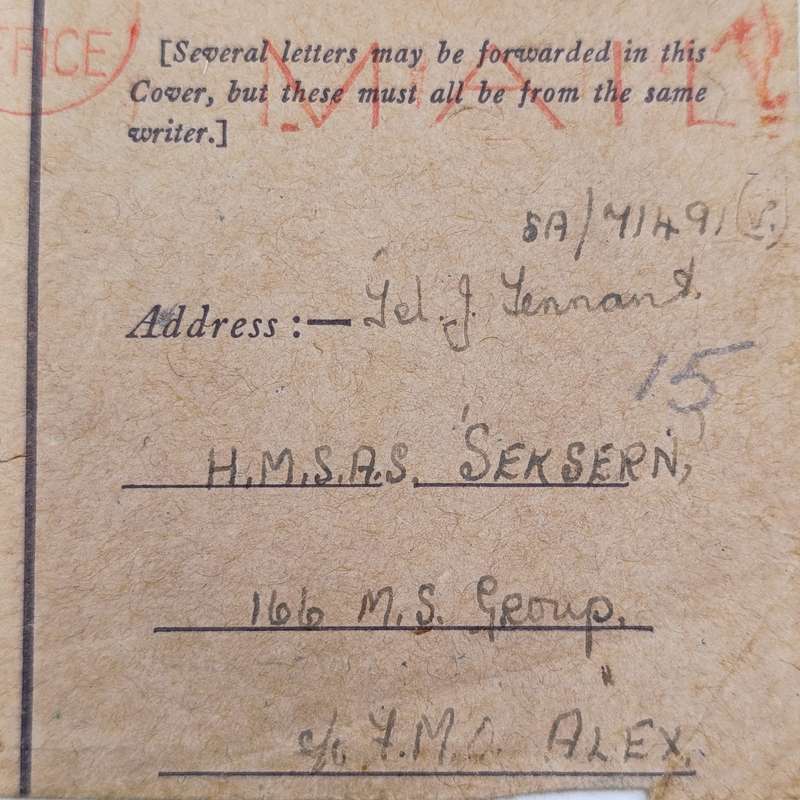 FFICE
MAIL
[Several letters may be forwarded in this
Cover, but these must all be from the same
writer.]
SA/71491 (V.)
Address:— Tel. J. Tennant.
15
H.M.S.A.S. 'SEKSERN',
166 M.S. Group.
c/o F.M.O. ALEX.